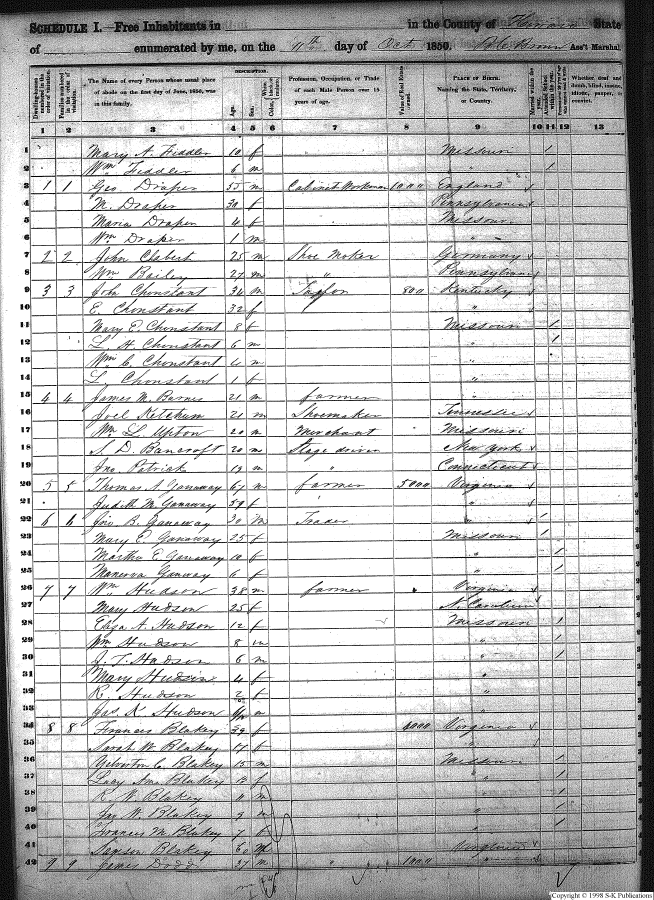 SCHEDULE I.—Free Inhabitants in in the County of State
of enumerated by me, on the 11th day of Oct 1850. Ass't Marshal.
Dwelling-houses numbered in the order of visitation.
Families numbered in the order of visitation.
The Name of every Person whose usual place of abode on the first day of June, 1850, was in this family.
DESCRIPTION.
Age.
Sex.
Color, White, black, or mulatto.
Profession, Occupation, or Trade of each Male Person over 15 years of age.
Value of Real Estate owned.
PLACE OF BIRTH.
Naming the State, Territory, or Country.
Married within the year.
Attended School within the year.
Whether deaf and dumb, blind, insane, idiotic, pauper, or convict.
1 2 3 4 5 6 7 8 9 10 11 12 13
1 Mary A. Fiddler 10 f Missouri 1
2 Wm Fiddler 6 m " 1
3 1 1 Geo Draper 35 m Cabinet Workman 1000 England
4 M. Draper 30 f Pennsylvania
5 Maria Draper 4 f Missouri
6 Wm Draper 1 m "
7 2 2 John 25 m Shoe Maker Germany
8 Wm Bailey 27 m " Pennsylvania
9 3 3 John Chonstant 34 m 800 Kentucky
10 E. Chonstant 32 f "
11 Mary E. Chonstant 8 f Missouri 1
12 L. H. Chonstant 6 m " 1
13 Wm C. Chonstant 4 m "
14 L. Chonstant 1 f "
15 4 4 James M. Barnes 21 m farmer "
16 Joel Ketchum 21 m Shoemaker Tennessee
17 Wm L. Upton 20 m Merchant Missouri
18 S. D. Bancroft 20 m Stage driver New York
19 Jno Patrick 19 m " Connecticut
20 5 5 Thomas A. Ganaway 67 m farmer 5000 Virginia
21 Judith M. Ganaway 59 f "
22 6 6 B. Ganaway 30 m Trader " 1
23 Mary E. Ganaway 25 f Missouri 1
24 Martha E. Ganaway 10 f " 1
25 Manerva Ganaway 6 f " 1
26 7 7 Wm Hudson 38 m farmer Virginia
27 Mary Hudson 25 f N. Carolina
28 Eliza A. Hudson 12 f Missouri 1
29 Wm Hudson 8 m " 1
30 J. T. Hudson 6 m " 1
31 Mary Hudson 4 f "
32 R. Hudson 2 f "
33 Jas K Hudson m "
34 8 8 Frances Blakey 39 f Virginia
35 Sarah W. Blakey 17 f "
36 Yelverton C. Blakey 15 m Missouri 1
37 Lucy Ann Blakey f " 1
38 R. W. Blakey 11 m 1
39 Jas W. Blakey 9 m " 1
40 Frances M. Blakey 7 f " 1
41 Blakey 60 m Virginia
42 9 9 James Dodd 27 m " 1000 "
Copyright © 1998 S-K Publications